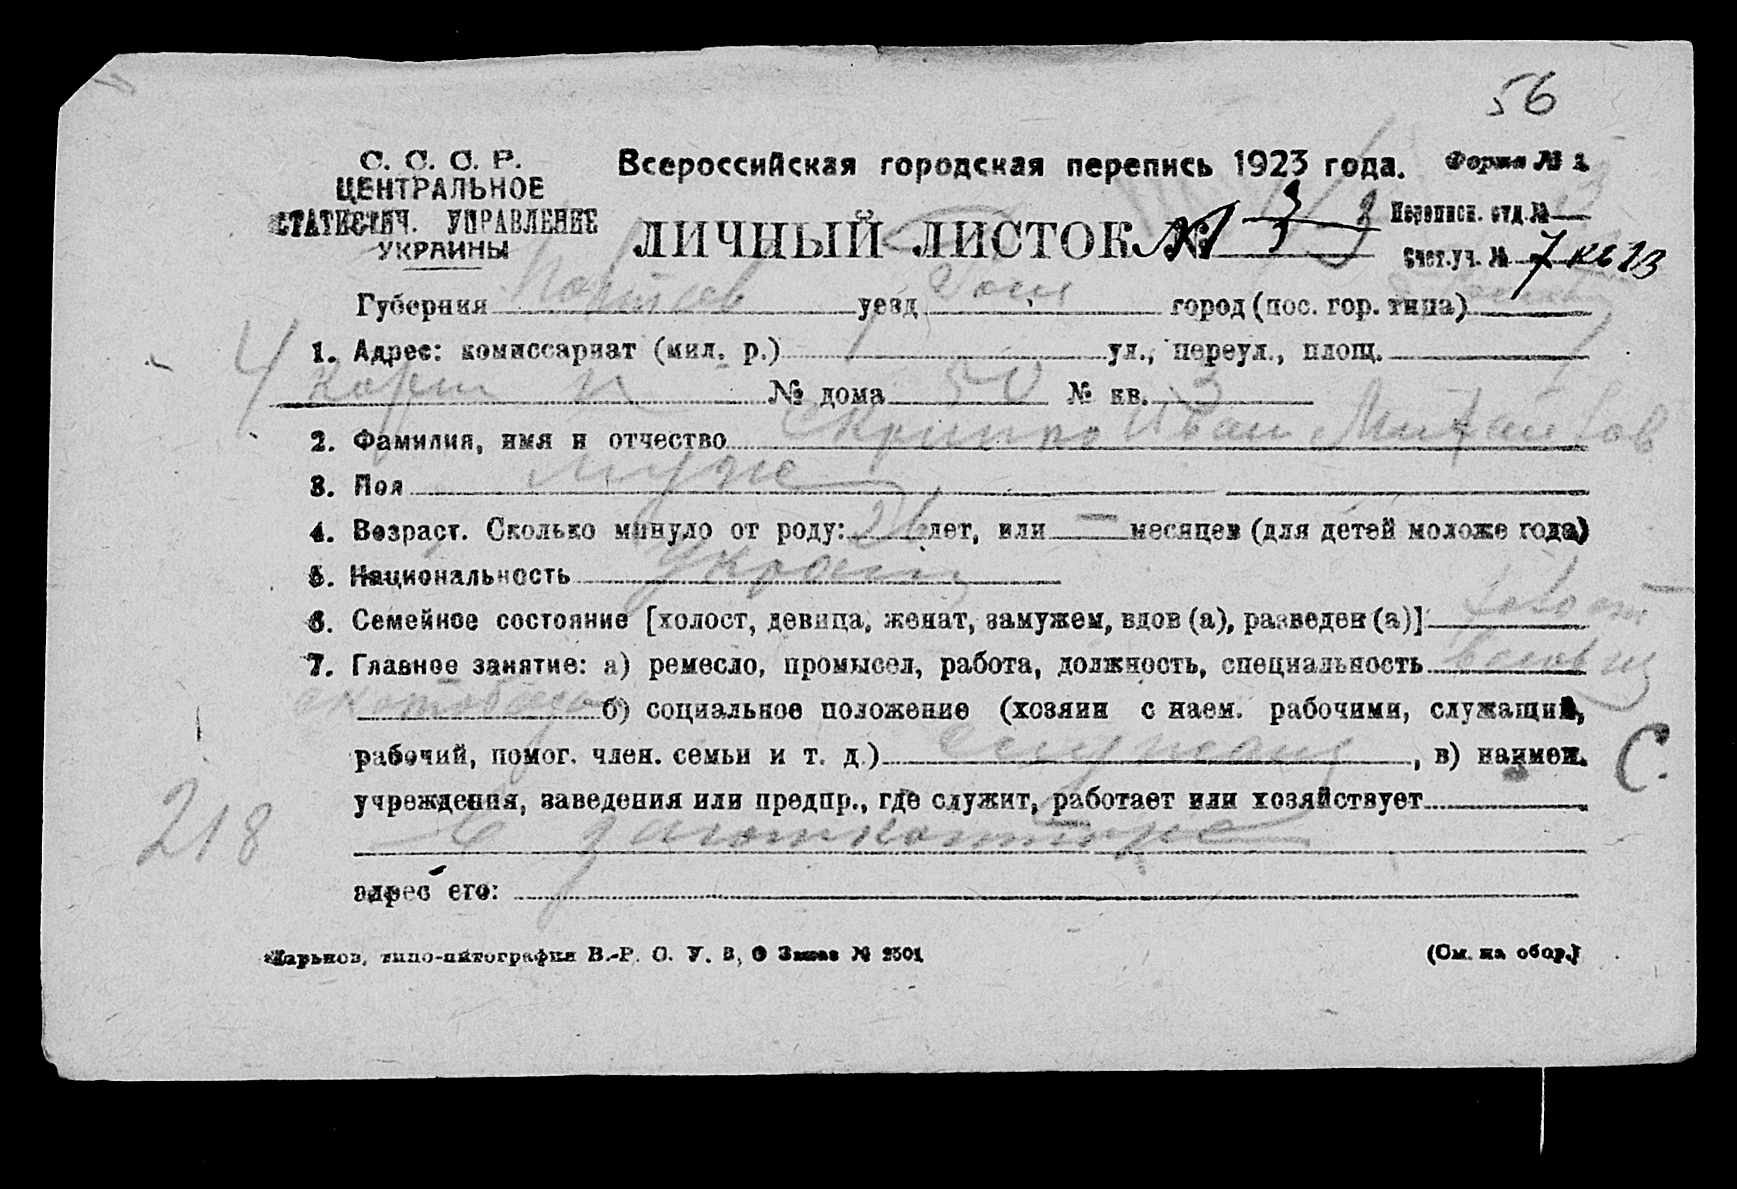 56
С. С. С. Р.
ЦЕНТРАЛЬНОЕ
СТАТИСТИЧ. УПРАВЛЕНИЕ
УКРАИНЫ
Всероссийская городская перепись 1923 года. Форма № 1
ЛИЧНЫЙ ЛИСТОК №
Переписн. отд. №
Счет. уч. № 7
Губерния уезд город (пос. гор. типа)
1. Адрес: комиссариат (мил. р.) ул., переул., площ.
4
№ дома 50 № кв. 3
2. Фамилия, имя и отчество Скрипко Иван Михайлов
3. Пол муж
4. Возраст. Сколько минуло от роду: 26 лет, или — месяцев (для детей моложе года)
5. Национальность Украин
6. Семейное состояние [холост, девица, женат, замужем, вдов (а), разведен (а)] холост
7. Главное занятие: а) ремесло, промысел, работа, должность, специальность весовщ
скотобазы б) социальное положение (хозяин с наем. рабочими, служащий,
рабочий, помог. член. семьи и т. д.) служащ, в) наимен.
С.
учреждения, заведения или предпр., где служит, работает или хозяйствует
218
в заготконторе
адрес его:
Харьков, типо-литография В.-Р. О. У. В, О Заказ № 2501
(См. на обор.)